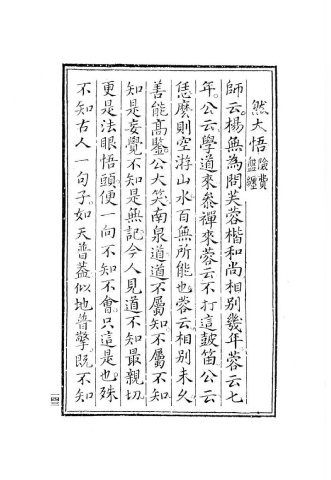 然大悟險費盤纏
師云楊無為問芙蓉楷和尚相別幾年蓉云七
年公云學道來參禪來蓉云不打這皷笛公云
恁麼則空游山水百無所能也蓉云相別未久
善能高鑒公大笑南泉道道不屬知不屬不知
知是妄覺不知是無記今人見道不知最親切
更是法眼悟頭便一向不知不會只這是也殊
不知古人一句子如天普葢似地普擎既不知